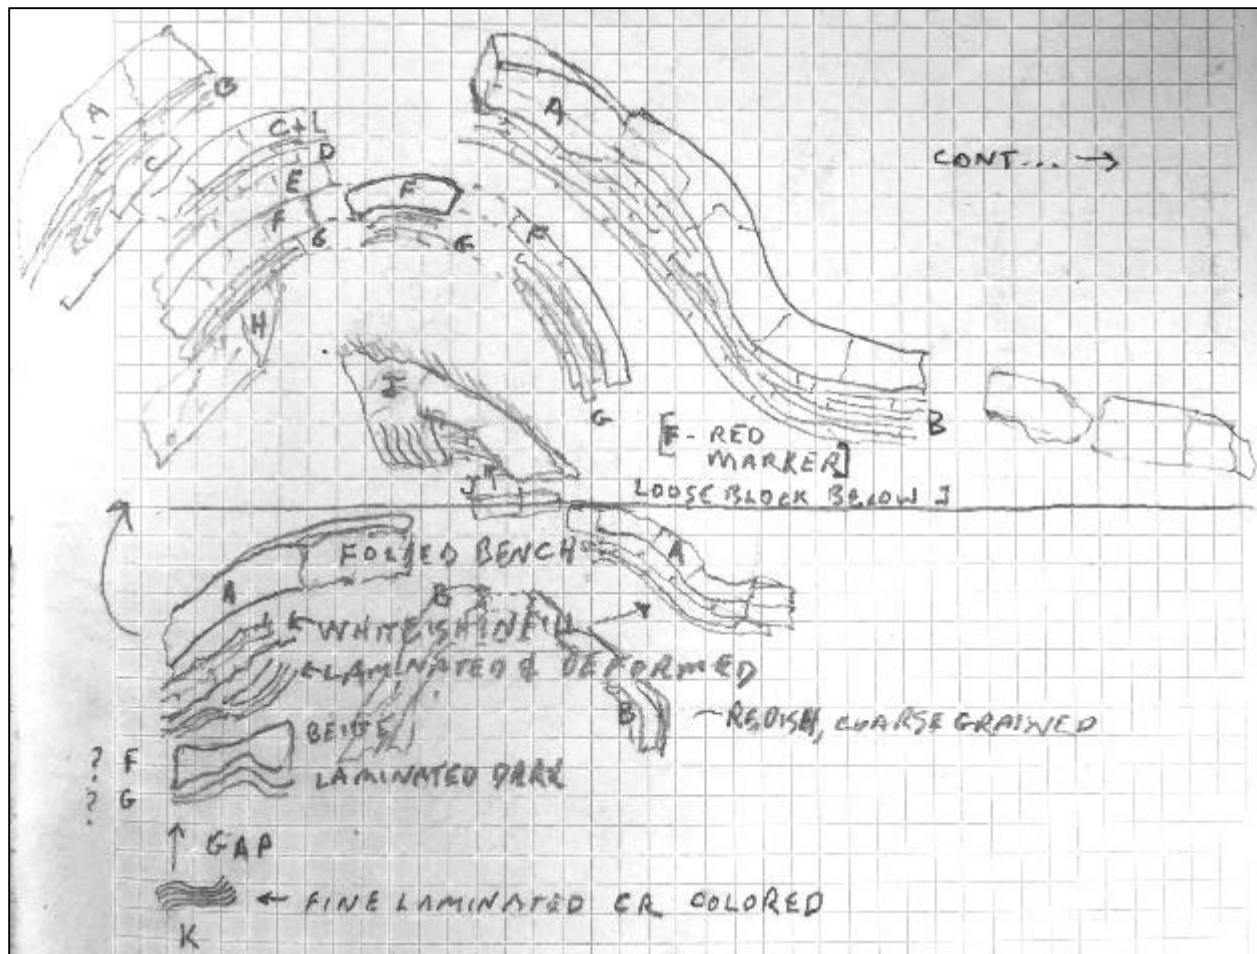 A
B
C
C+L
D
E
F
G
H
F
G
F
G
A
B
CONT... →
I
J
[F - RED
MARKER]
LOOSE BLOCK BELOW J
FOLDED BENCH
A
A
B
B
LAMINATED & DEFORMED
REDISH, COARSE GRAINED
? F
? G
LAMINATED DARK
GAP
← FINE LAMINATED CR COLORED
K